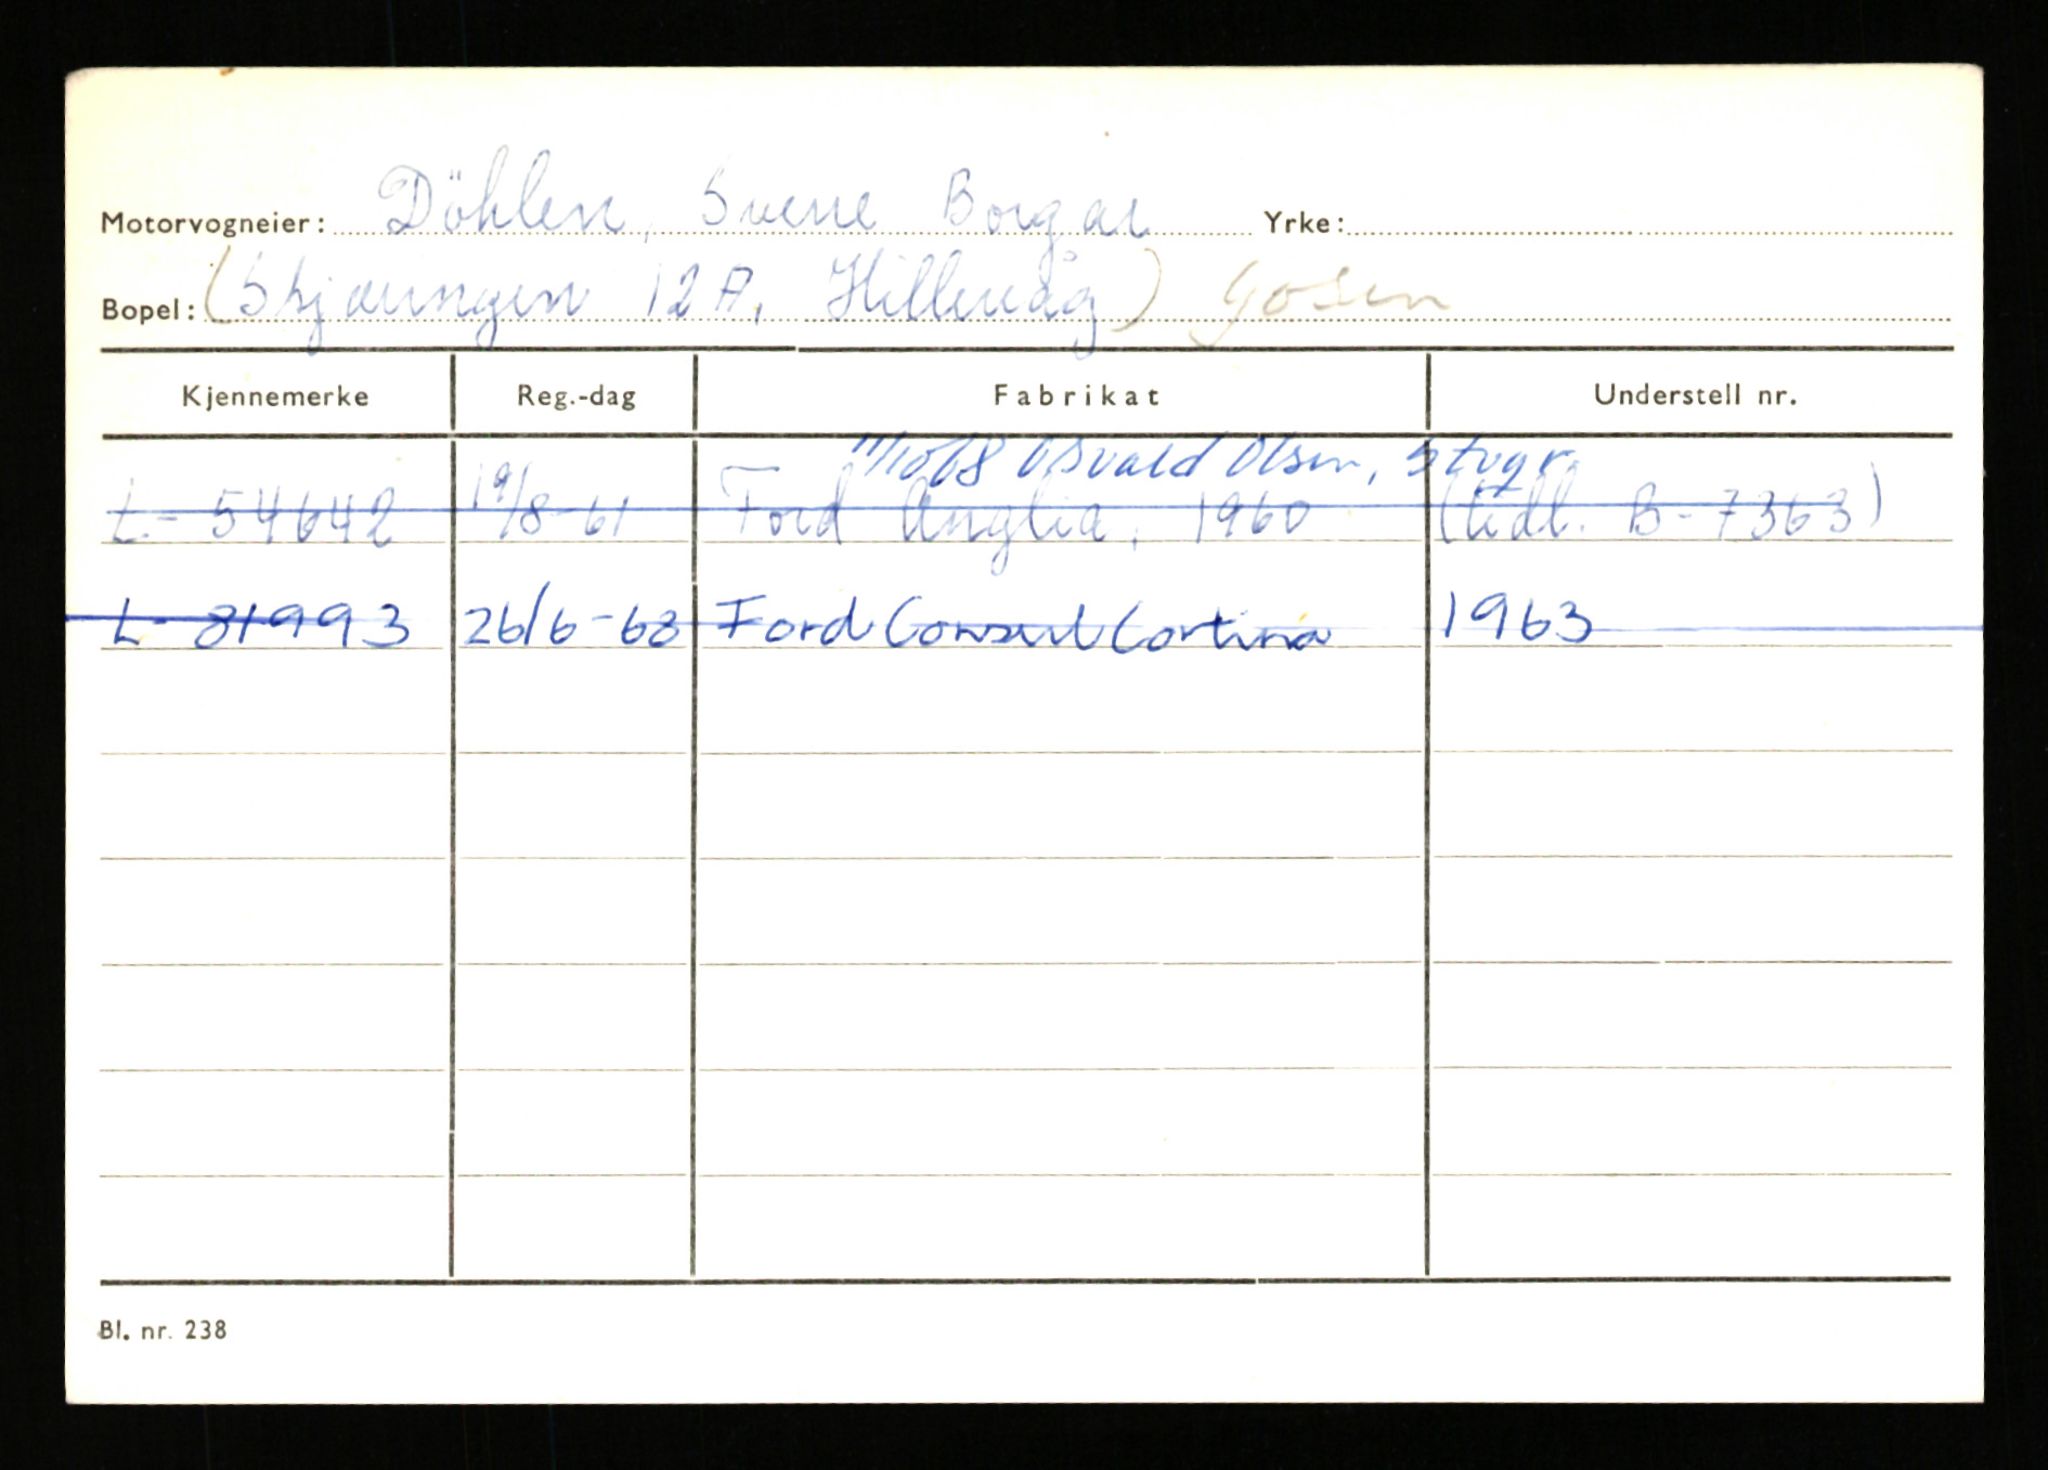 Motorvogneier: Döhlen, Sverre Borgar Yrke:
Bopel: (Skjæringen 12 A, Hillevåg) Gosen
Kjennemerke Reg.-dag Fabrikat Understell nr.
11/10 68 Osvald Olsen, Stvgr.
L - 54642 19/8-61 Ford Anglia, 1960 (tidl. B - 7363)
L - 81993 26/6-68 Ford Consul Cortina 1963
Bl. nr. 238